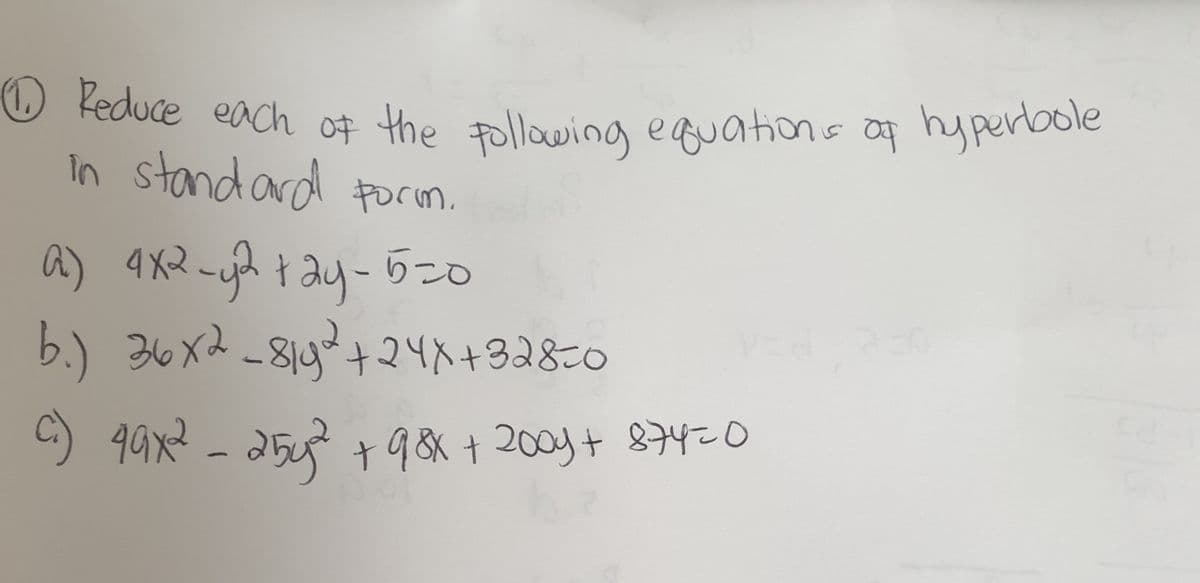 ① Reduce each of the following equations of hyperbole
in standard form.
a) 4x2 - y2 + 2y - 5 = 0
b.) 36x2 - 81y2 + 24x + 328 = 0
c.) 49x2 - 25y2 + 98x + 200y + 874 = 0